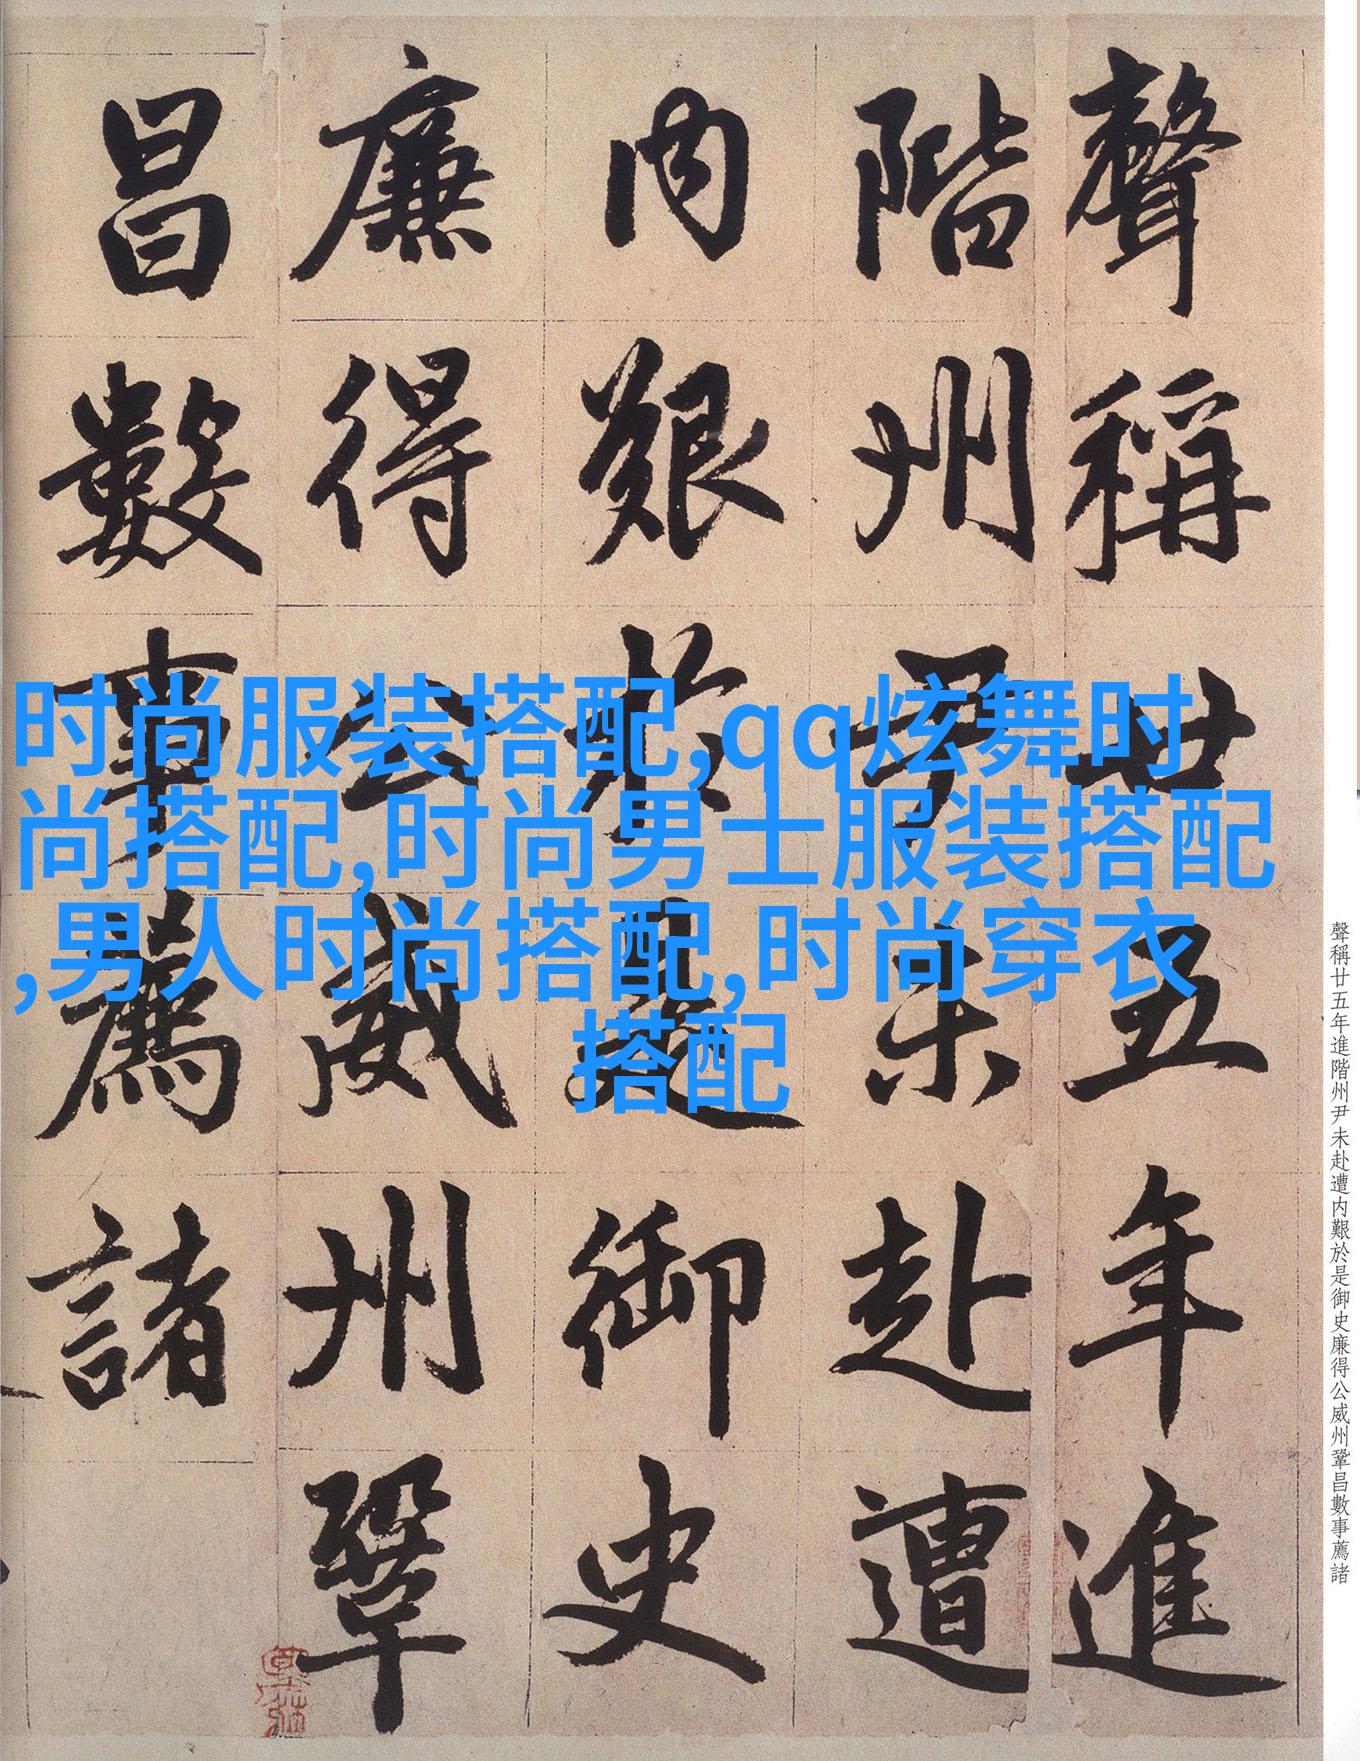 聲稱廿五年進
階州尹未赴遭
内艱於是御史
廉得公威州鞏
昌數事薦諸
时尚服装搭配,qq炫舞时
尚搭配,时尚男士服装搭配
,男人时尚搭配,时尚穿衣
搭配
聲稱廿五年進階州尹未赴遭内艱於是御史廉得公威州鞏昌數事薦諸